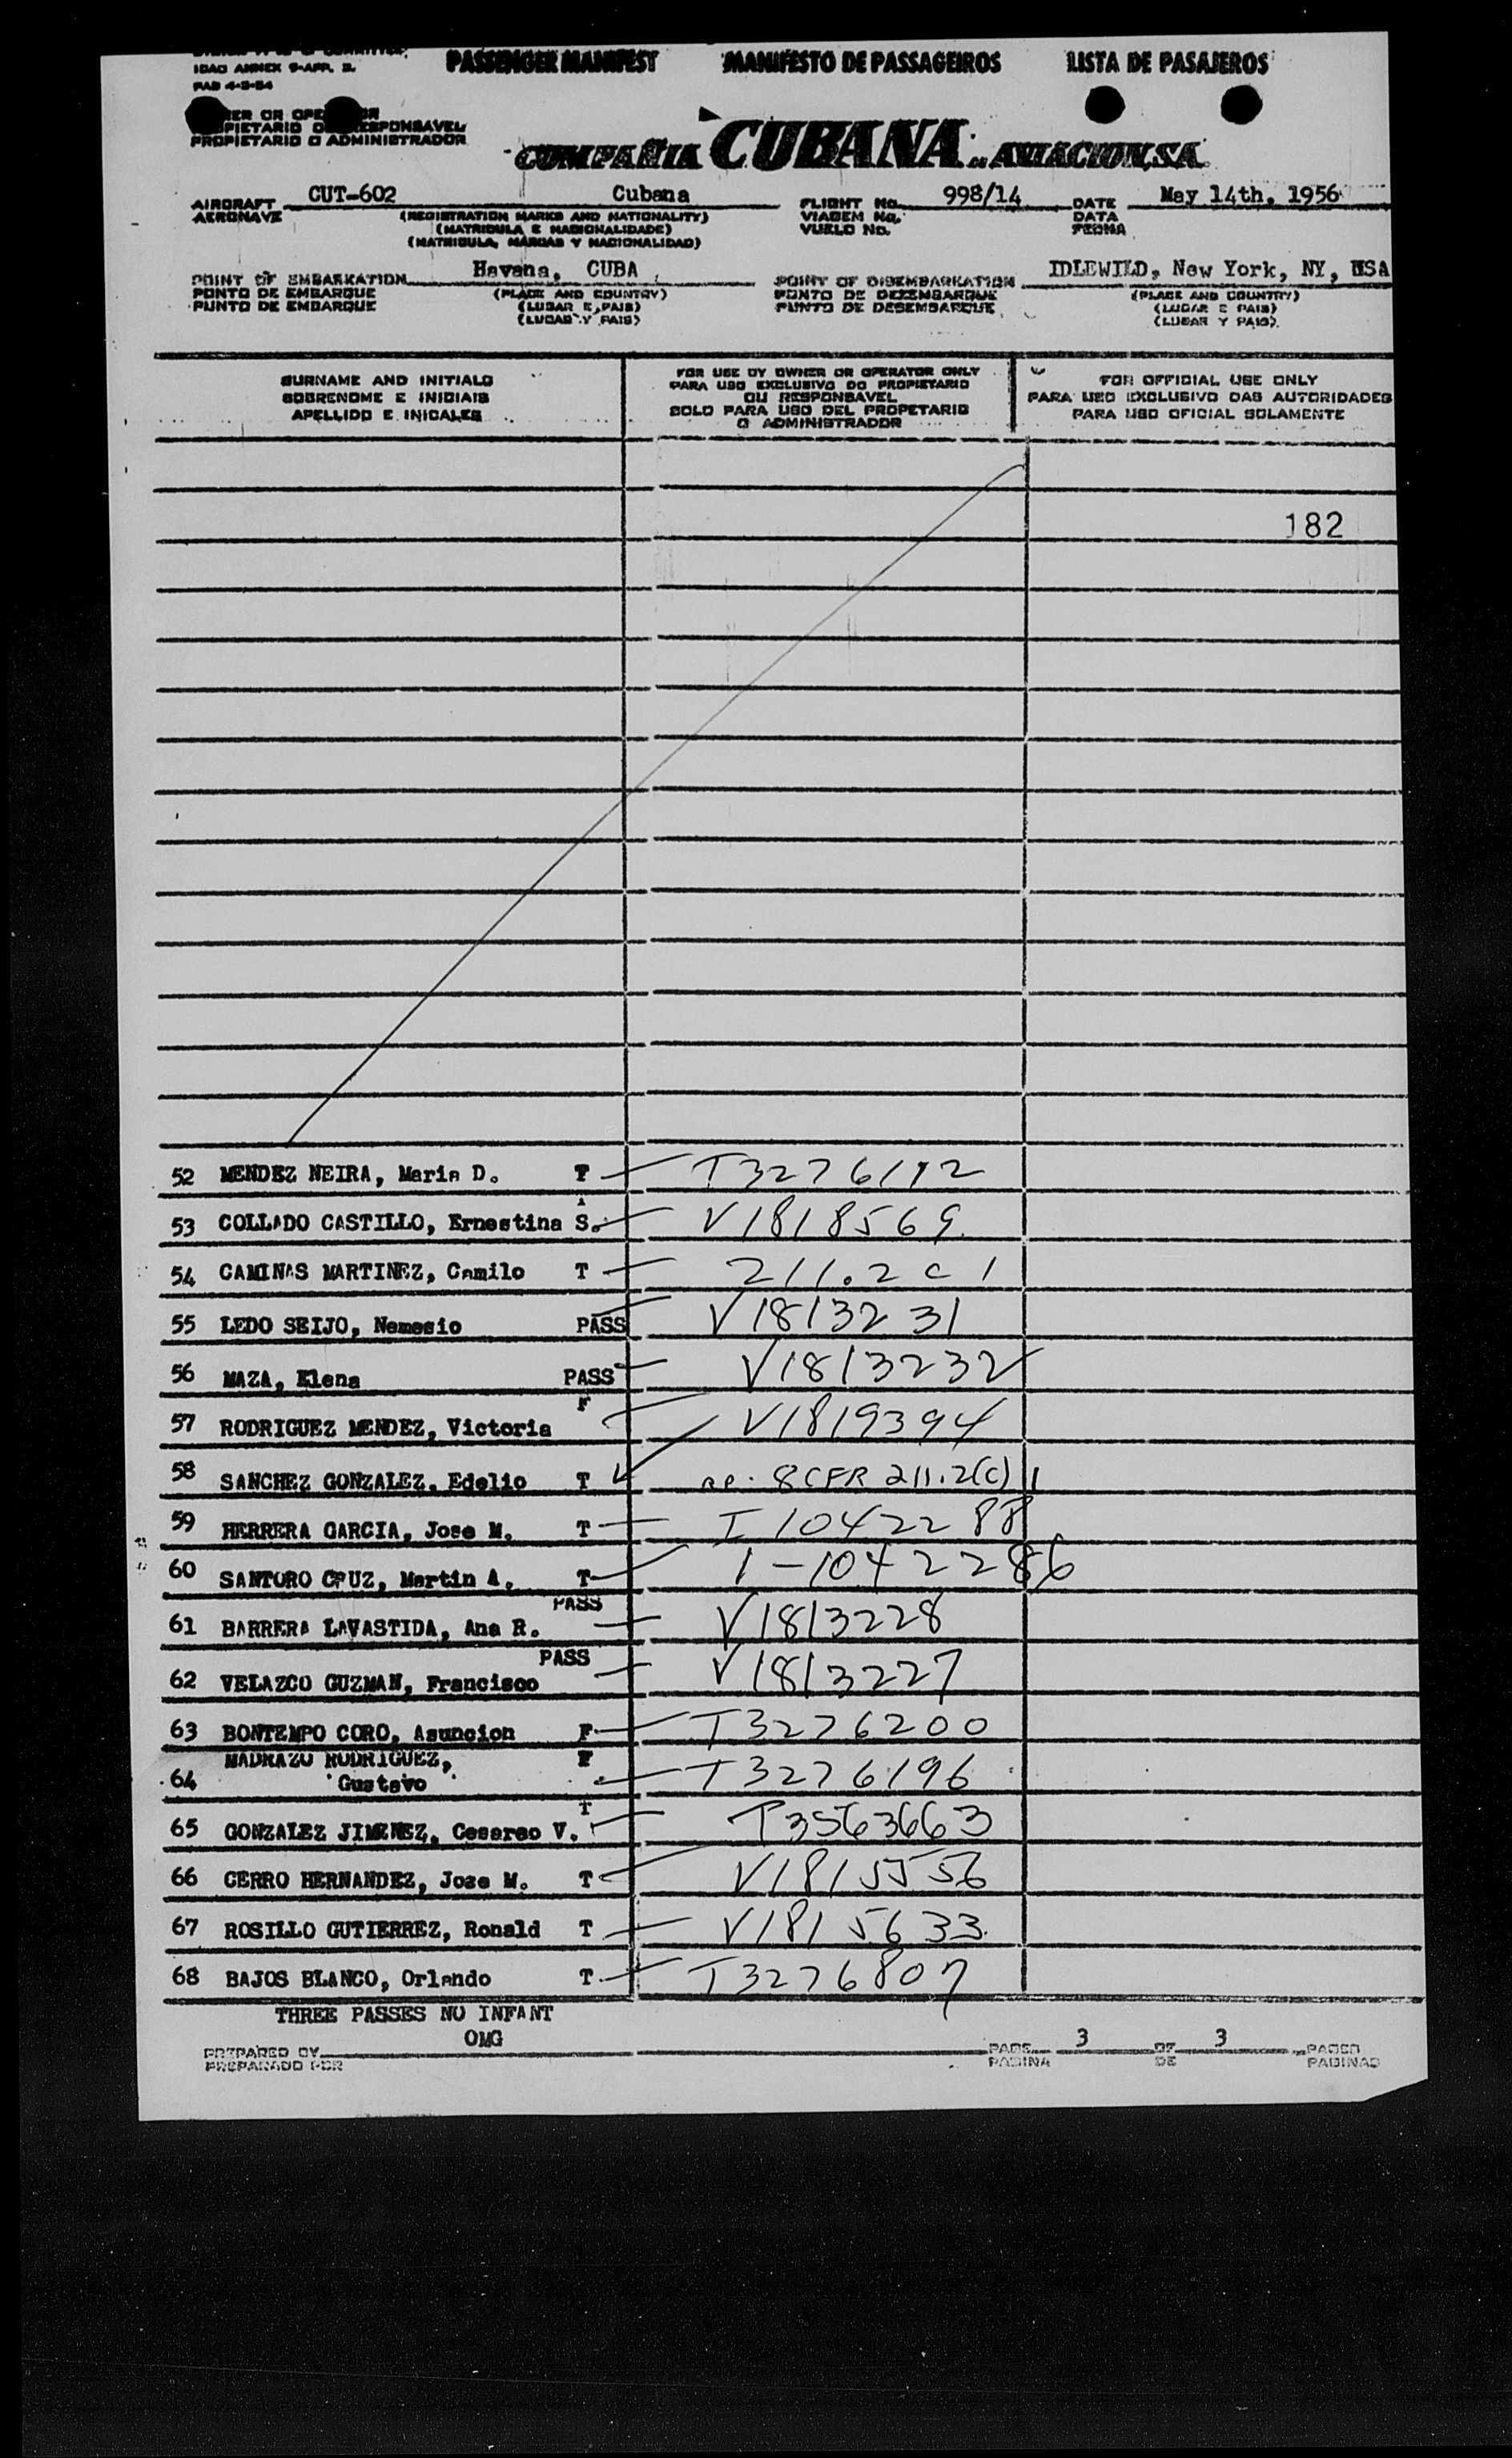 PASSENGER MANIFEST MANIFESTO DE PASSAGEIROS LISTA DE PASAJEROS
ICAO ANNEX 9-APP. 3.
PAB 4-3-54
PROPIETARIO O ADMINISTRADOR
COMPAÑIA CUBANA DE AVIACION, S.A.
AIRCRAFT CUT-602 Cubana FLIGHT No. 998/14 DATE May 14th, 1956
AERONAVE (REGISTRATION MARKS AND NATIONALITY) VIAGEM No. DATA
(MATRICULA E NACIONALIDADE) VUELO No. FECHA
(MATRICULA, MARCAS Y NACIONALIDAD)
POINT OF EMBARKATION Havana, CUBA POINT OF DISEMBARKATION IDLEWILD, New York, NY, USA
PONTO DE EMBARQUE (PLACE AND COUNTRY) PONTO DE DEZEMBARQUE (PLACE AND COUNTRY)
PUNTO DE EMBARQUE (LUGAR E PAIS) PUNTO DE DESEMBARQUE (LUGAR E PAIS)
(LUGAR Y PAIS) (LUGAR Y PAIS)
SURNAME AND INITIALS FOR USE BY OWNER OR OPERATOR ONLY FOR OFFICIAL USE ONLY
SOBRENOME E INICIAIS PARA USO EXCLUSIVO DO PROPIETARIO PARA USO EXCLUSIVO DAS AUTORIDADES
APELLIDO E INICALES OU RESPONSAVEL PARA USO OFICIAL SOLAMENTE
SOLO PARA USO DEL PROPETARIO
O ADMINISTRADOR
182
52 MENDEZ NEIRA, Maria D. F T3276192
53 COLLADO CASTILLO, Ernestina S. V1818569
54 CAMINAS MARTINEZ, Camilo T 211.2 c 1
55 LEDO SEIJO, Nemesio PASS V1813231
56 MAZA, Elena PASS V1813232
57 RODRIGUEZ MENDEZ, Victoria F V1819394
58 SANCHEZ GONZALEZ, Edelio T 8CFR 211.2(c) 1
59 HERRERA GARCIA, Jose M. T I 1042288
60 SANTORO CRUZ, Martin A. T 1-1042286
61 BARRERA LAVASTIDA, Ana R. PASS V1813228
62 VELAZCO GUZMAN, Francisco PASS V1813227
63 BONTEMPO CORO, Asuncion F T3276200
64 MADRAZO RODRIGUEZ, Gustavo F T3276196
65 GONZALEZ JIMENEZ, Cesareo V. T T3563663
66 CERRO HERNANDEZ, Jose M. T V1815556
67 ROSILLO GUTIERREZ, Ronald T V1815633
68 BAJOS BLANCO, Orlando T T3276807
THREE PASSES NO INFANT
PREPARED BY OMG PAGE 3 OF 3 PAGES
PREPARADO POR PAGINA DE PAGINAS